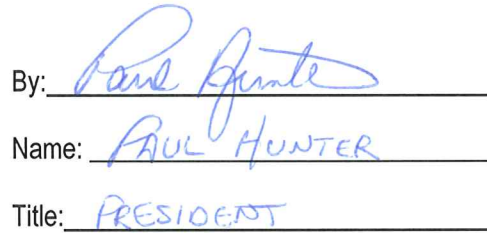 By: Paul Hunter
Name: PAUL HUNTER
Title: PRESIDENT